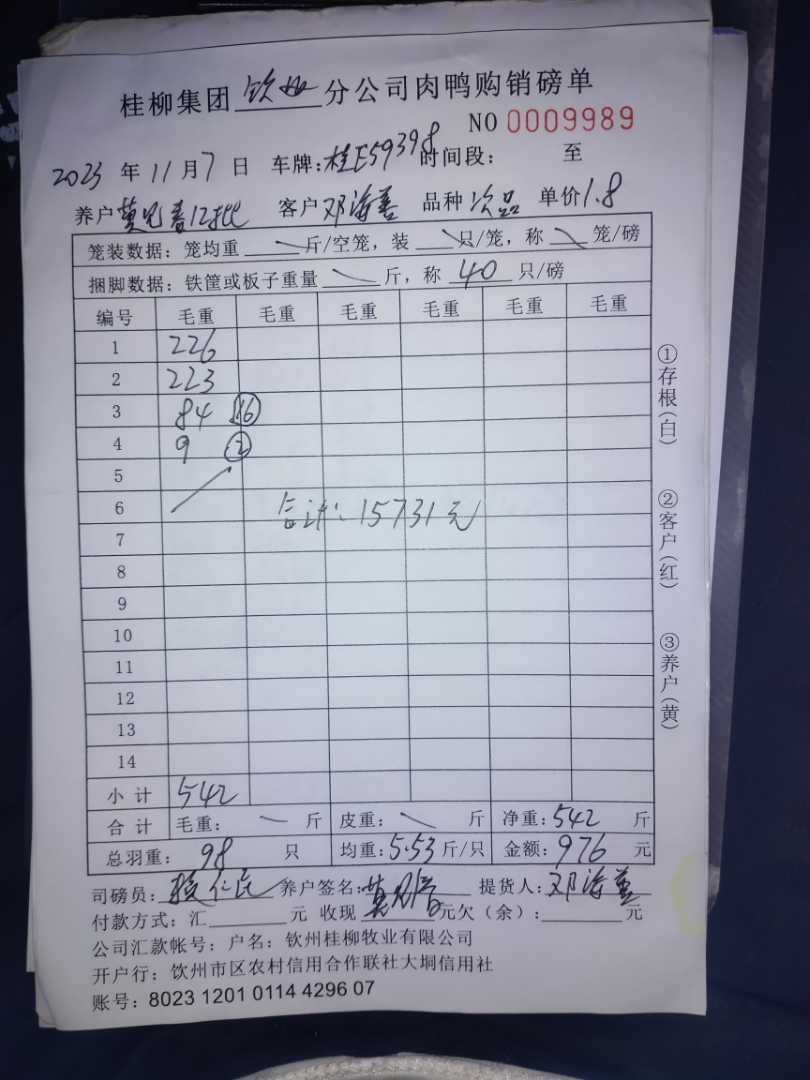 桂柳集团 钦州 分公司肉鸭购销磅单
NO 0009989
2023 年 11 月 7 日 车牌:桂E59398 时间段: 至
养户 莫 12批 客户 邓海善 品种 次品 单价 1.8
笼装数据: 笼均重 斤/空笼, 装 只/笼, 称 笼/磅
捆脚数据: 铁筐或板子重量 斤, 称 40 只/磅
编号 毛重 毛重 毛重 毛重 毛重 毛重
1 226
2 223
3 84 16
4 9 2
5
6 合计: 15731元
7
8
9
10
11
12
13
14
小计 542
合计 毛重: 斤 皮重: 斤 净重: 542 斤
总羽重: 98 只 均重: 5.53 斤/只 金额: 976 元
司磅员: 仁 养户签名: 莫 提货人: 邓海善
付款方式: 汇 元 收现 元欠(余): 元
公司汇款帐号: 户名: 钦州桂柳牧业有限公司
开户行: 钦州市区农村信用合作联社大垌信用社
账号: 8023 1201 0114 4296 07
①存根(白)
②客户(红)
③养户(黄)